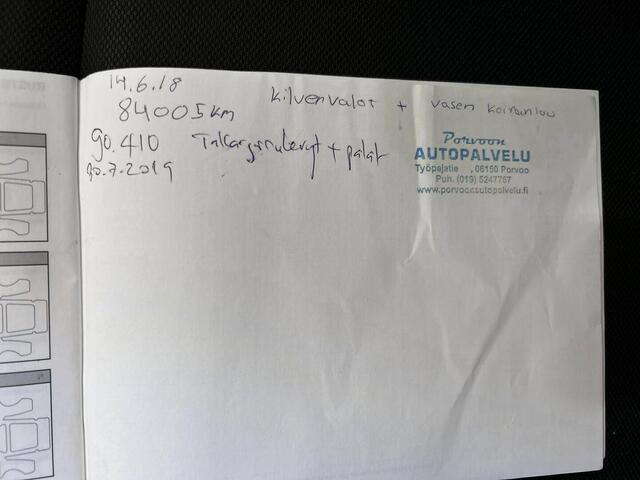 14.6.18
84005 km Kilvenvalot + vasen koiranluu
90.410 Takajarrulevyt + palat
20.7.2019
Porvoon
AUTOPALVELU
Työpajatie , 06150 Porvoo
Puh. (019) 5247767
www.porvoonautopalvelu.fi